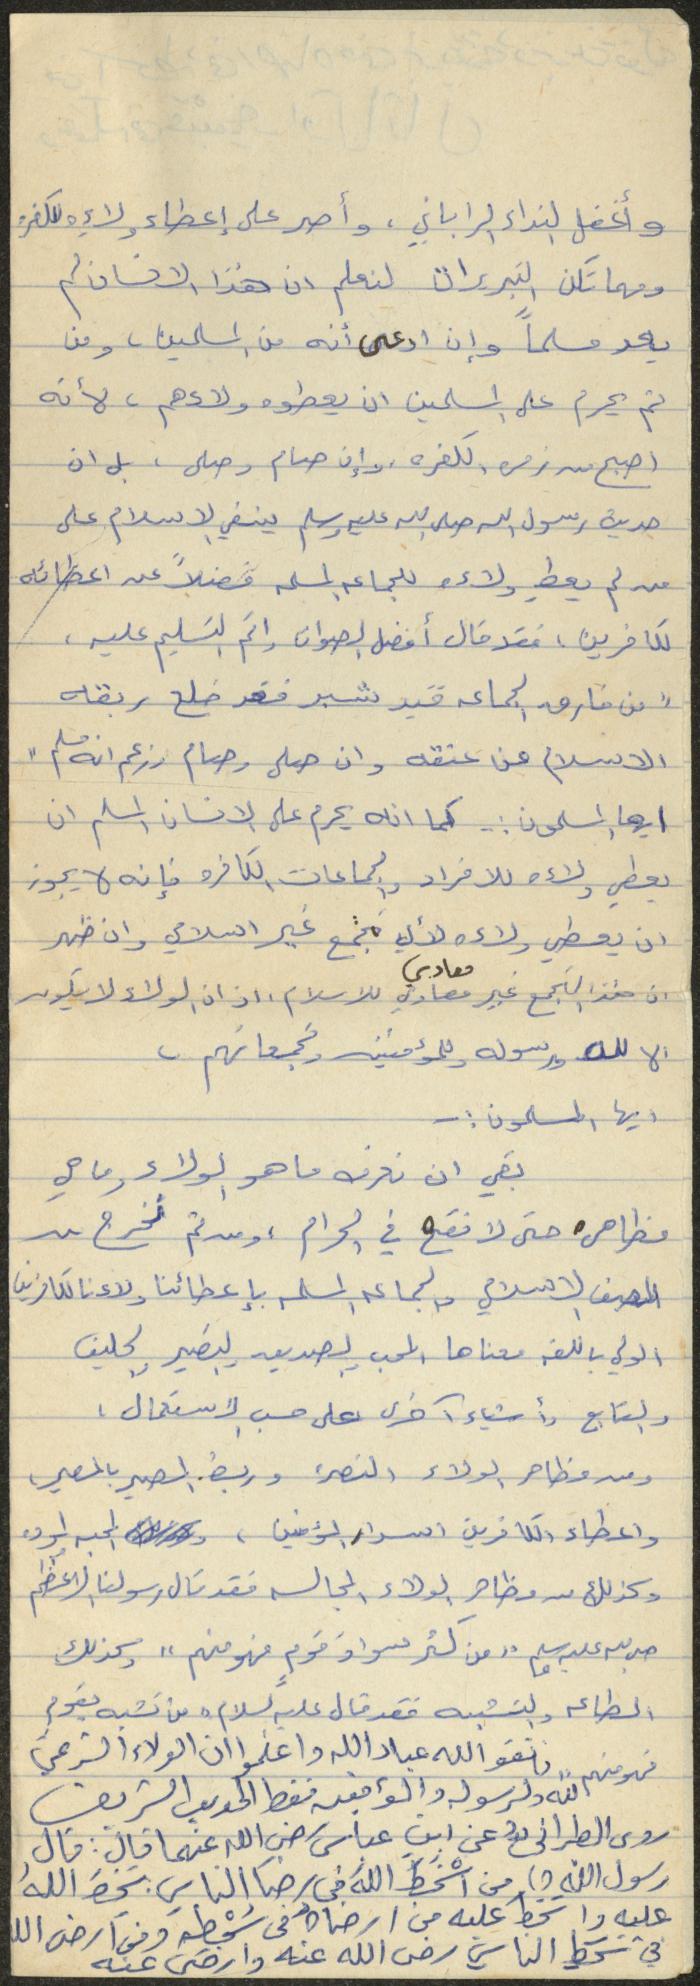 وأغفل النداء الرباني ، وأصر على إعطاء ولاءه للكفره
ومهما تكن التبريرات لنعلم ان هذا الانسان لم
يعد مسلماً وإن ادعى أنه من المسلمين ، ومن
ثم يحرم على المسلمين ان يعطوه ولاءهم ، لأنه
اصبح من زمرة الكفره ، وإن صام وصلى ، بل ان
حديث رسول الله صلى الله عليه وسلم ينفي الاسلام على
من لم يعطي ولاءه للجماعه المسلمه فضلاً عن اعطائه
لكافرين ، فقد قال أفضل الصلوات واتم التسليم عليه ،
" من فارق الجماعه قيد شبر فقد خلع ربقة
الاسلام من عنقه وان صلى وصام وزعم انه مسلم "
ايها المسلمون :- كما انه يحرم على الانسان المسلم ان
يعطي ولاءه للافراد والجماعات الكافره فإنه لا يجوز
ان يعطي ولاءه لأي تجمع غير اسلامي وان ظهر
معادي
ان هذا التجمع غير معادي للاسلام ، اذ ان الولاء لا يكون
الا لله ورسوله وللمؤمنين وتجمعاتهم ،
ايها المسلمون :-
بقي ان نعرف ما هو الولاء وما هي
مظاهره حتى لا نقع في الحرام ، ومن ثم نخرج من
الصف الاسلامي والجماعه المسلمه بإعطائنا ولاءنا لكافرين
الولي باللغه معناها المحب الصديق النصير الحليف
والتابع وأشياء آخرى على حسب الاستعمال ،
ومن مظاهر الولاء النصرة وربط المصير بالمصير ،
واعطاء الكافرين اسرار المؤمنين ، المحبه المودة
وكذلك من مظاهر الولاء المجالسه فقد قال رسولنا الاعظم
صلى الله عليه وسلم " من كثر سواد قوم فهو منهم " وكذلك
الطاعه والتشبه فقد قال عليه السلام من تشبه بقوم
فهو منهم فاتقوا الله عباد الله واعلموا ان الولاء الشرعي
لله ولرسوله والمؤمنين فقط الحديث الشريف
روى الطبراني عن ابن عباس رضي الله عنهما قال : قال
رسول الله من أسْخَطَ اللهَ في رضا الناسِ سَخِطَ اللهُ
عليه واسخط عليه من ارضاه في سُخْطِهِ ومن ارضى الله
في سَخَطِ الناس رضى الله عنه وارضى عنه